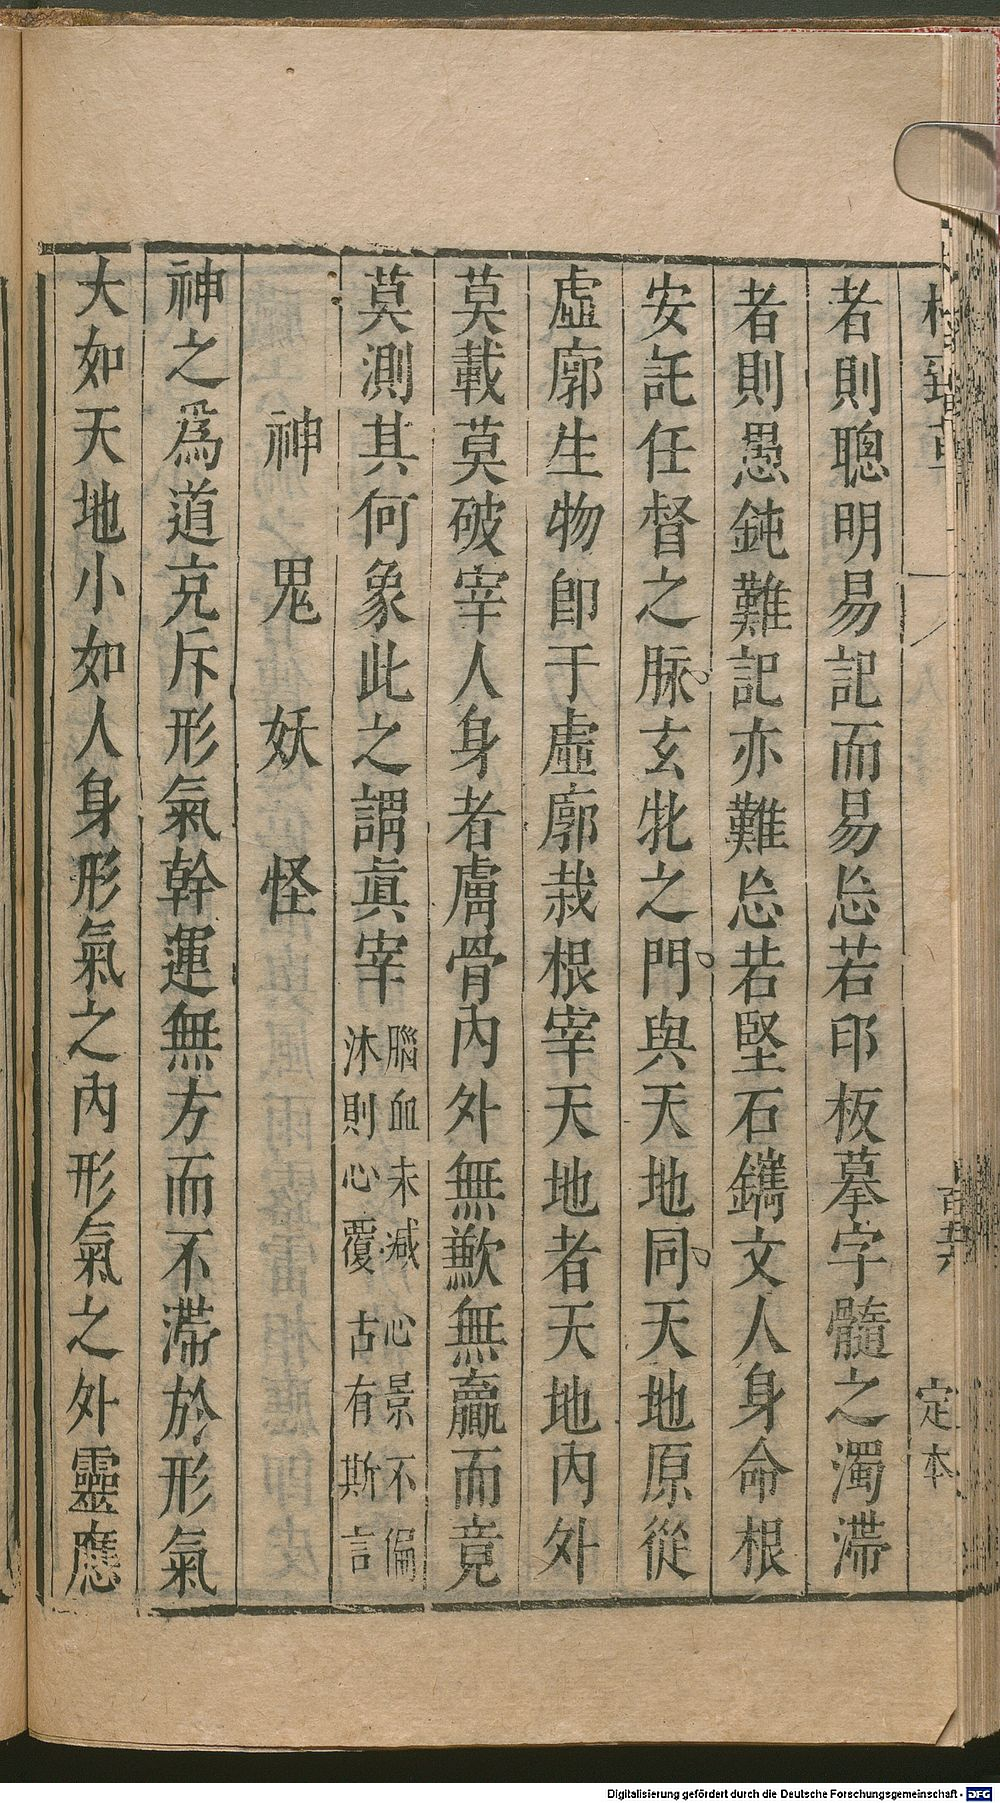 格致草
百六
定本
者則聰明易記而易忘若印板摹字髓之濁滯
者則愚鈍難記亦難忘若堅石鐫文人身命根
安託任督之脉玄牝之門與天地同天地原從
虛廓生物卽于虛廓栽根宰天地者天地內外
莫載莫破宰人身者膚骨內外無歉無贏而竟
莫測其何象此之謂眞宰腦血未减心景不偏
沐則心覆古有斯言
神鬼妖怪
神之爲道充斥形氣幹運無方而不滯於形氣
大如天地小如人身形氣之內形氣之外靈應
Digitalisierung gefördert durch die Deutsche Forschungsgemeinschaft - DFG